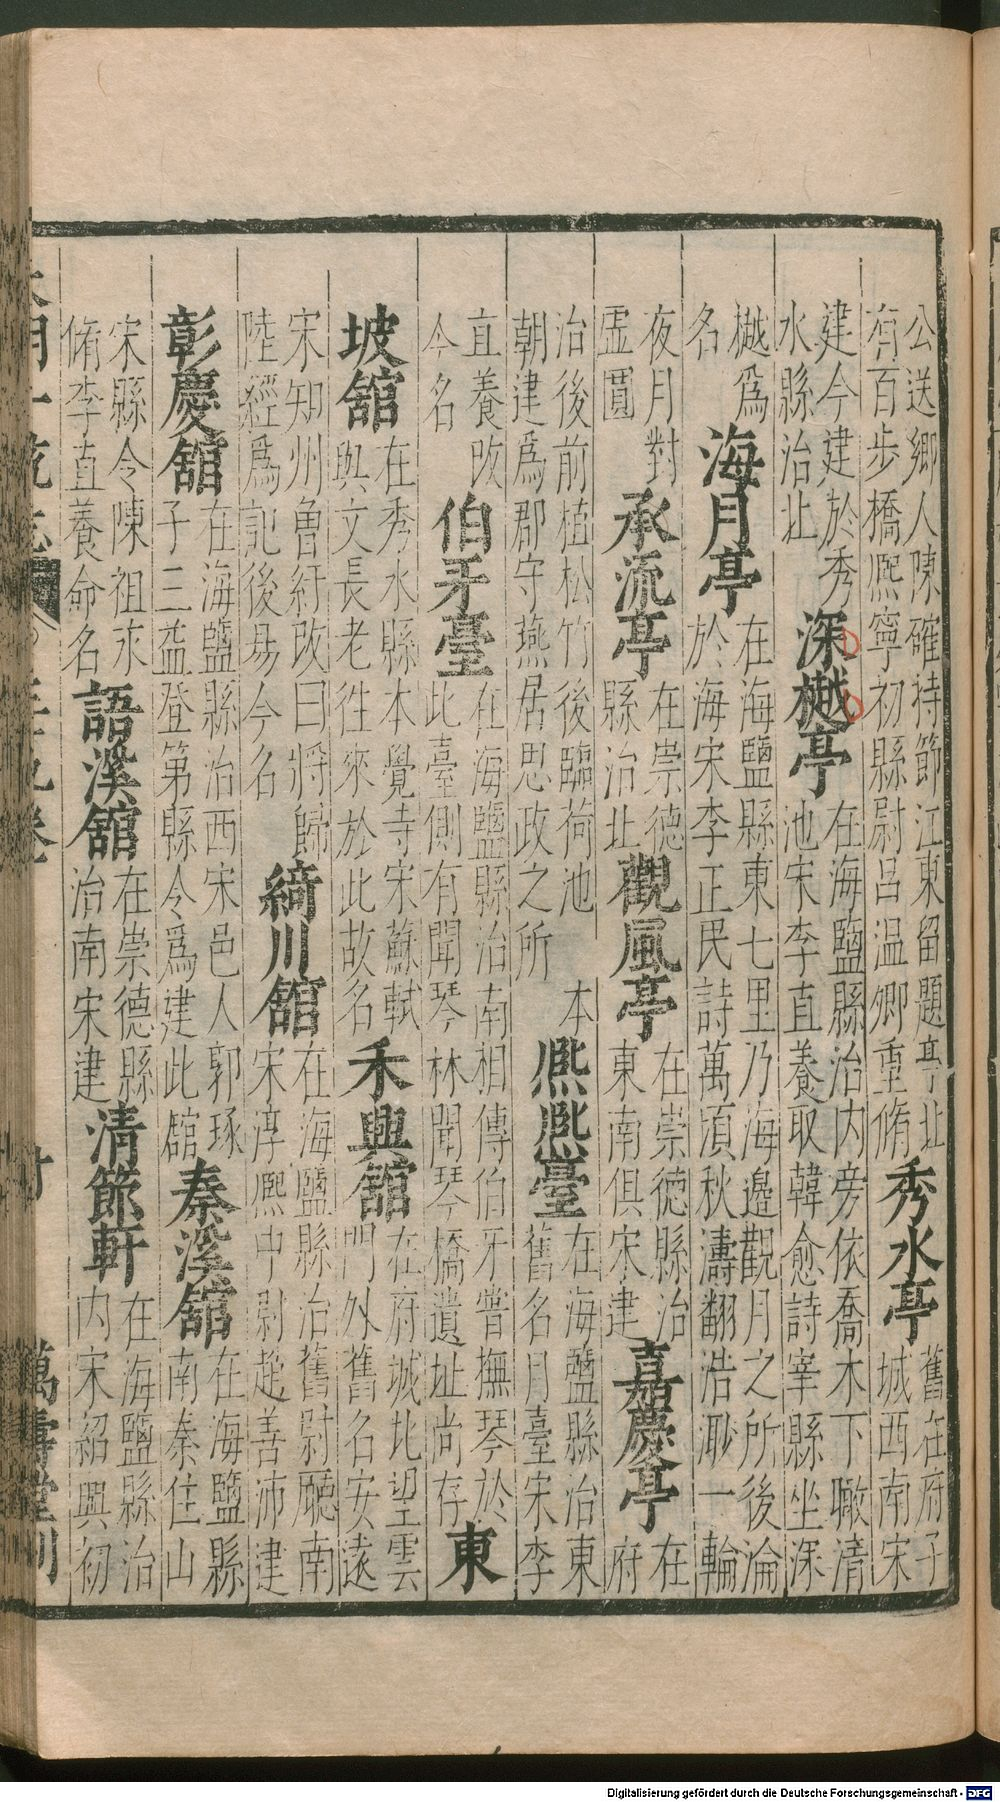 公送鄉人陳確持節江東留題亭北
有百步橋熈寧初縣尉呂温卿重脩
秀水亭
舊在府子城西南宋
建今建於秀水縣治北
深樾亭
在海鹽縣治内旁依喬木下瞰清
池宋李直養取韓愈詩宰縣坐深
樾爲名
海月亭
在海鹽縣東七里乃海邊觀月之所後淪
於海宋李正民詩萬頃秋濤翻浩渺一輪
夜月對虛圓
承流亭
在崇德縣治北
觀風亭
在崇德縣治東南俱宋建
嘉慶亭
在府
治後前植松竹後臨荷池本
朝建爲郡守燕居思政之所
熈熈臺
在海鹽縣治東
舊名月臺宋李
直養改今名
伯牙臺
在海鹽縣治南相傳伯牙嘗撫琴於
此臺側有聞琴林聞琴橋遺址尚存
東坡舘
在秀水縣本覺寺宋蘇軾
與文長老徃來於此故名
禾興舘
在府城北望雲
門外舊名安遠
宋知州魯紆改曰將歸
陸經爲記後易今名
綺川舘
在海鹽縣治舊尉廳南
宋淳熈中尉趙善沛建
彰慶舘
在海鹽縣治西宋邑人郭琢
子三益登第縣令爲建此舘
秦溪舘
在海鹽縣
南秦住山
宋縣令陳祖禾
脩李直養命名
語溪舘
在崇德縣
治南宋建
清節軒
在海鹽縣治
内宋紹興初
萬壽堂刊
Digitalisierung gefördert durch die Deutsche Forschungsgemeinschaft - DFG